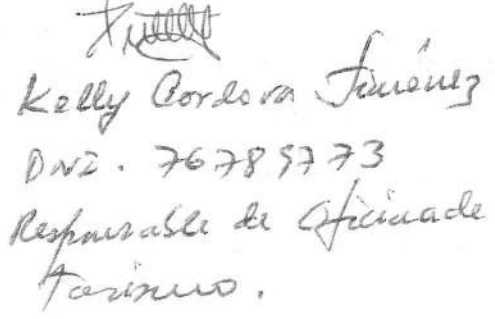 Kelly Cordova Jiménez
DNI. 76789773
Responsable de Oficina de
Turismo.